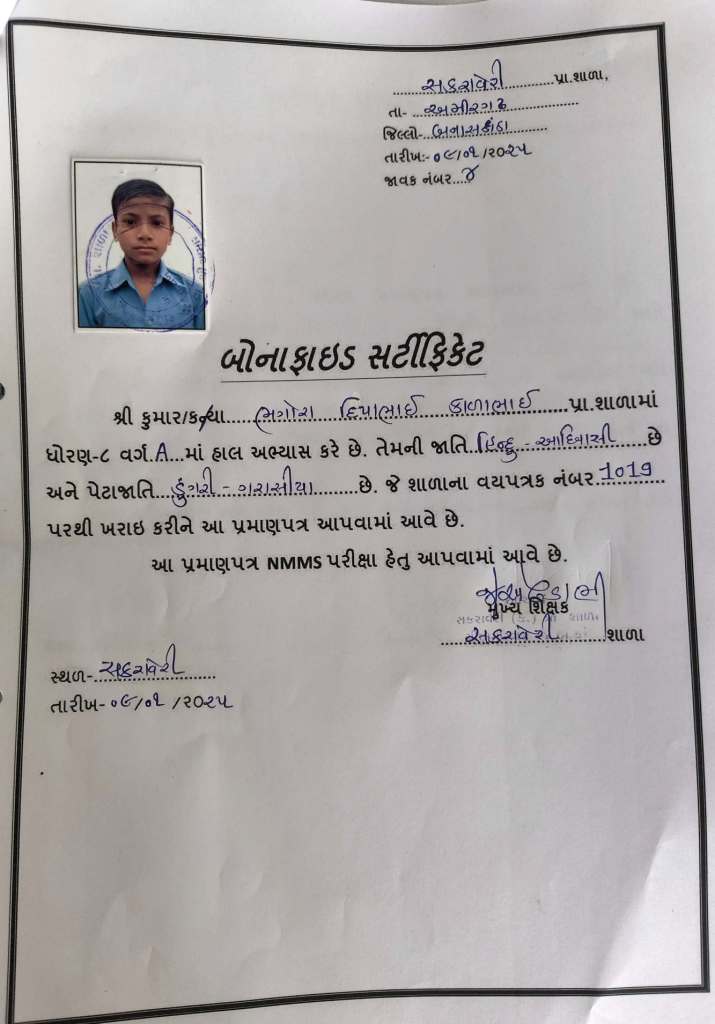 સકરાવેરી પ્રા.શાળા,
તા- અમીરગઢ
જિલ્લો- બનાસકાંઠા
તારીખ:- ૦૯/૦૧/૨૦૨૫
જાવક નંબર....૪
બોનાફાઇડ સર્ટીફિકેટ
શ્રી કુમાર/કન્યા ભગોરા દિપાભાઈ કાળાભાઈ પ્રા.શાળામાં
ધોરણ-૮ વર્ગ.A...માં હાલ અભ્યાસ કરે છે. તેમની જાતિ હિન્દુ - આદિવાસી છે
અને પેટાજાતિ ડુંગરી - ગરાસીયા છે. જે શાળાના વયપત્રક નંબર 1019
પરથી ખરાઇ કરીને આ પ્રમાણપત્ર આપવામાં આવે છે.
આ પ્રમાણપત્ર NMMS પરીક્ષા હેતુ આપવામાં આવે છે.
મુખ્ય શિક્ષક
સકરાવેરી શાળા
સ્થળ- સકરાવેરી
તારીખ- ૦૯/૦૧/૨૦૨૫